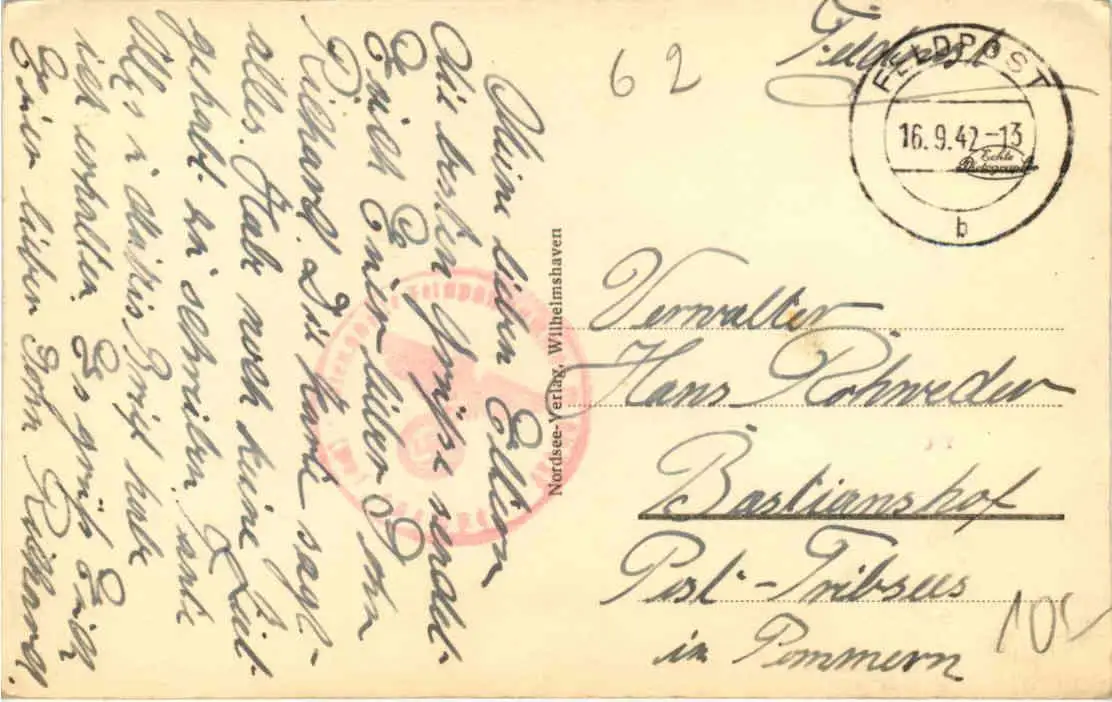 Meine lieben Eltern
Die besten Grüße sendet
Euch Euer lieber Sohn
Richard. Die Karte sagt
alles. Habe noch keine Zeit
gehabt zu schreiben
Brief habe
ich erhalten. Es grüßt Euch
Euer lieber Sohn Richard.
Nordsee-Verlag, Wilhelmshaven
62
Feldpost
FELDPOST
16.9.42-13
b
Echte
Photographie
Verwalter
Hans Rohweder
Bastianshof
Post-Tribsees
in Pommern
10